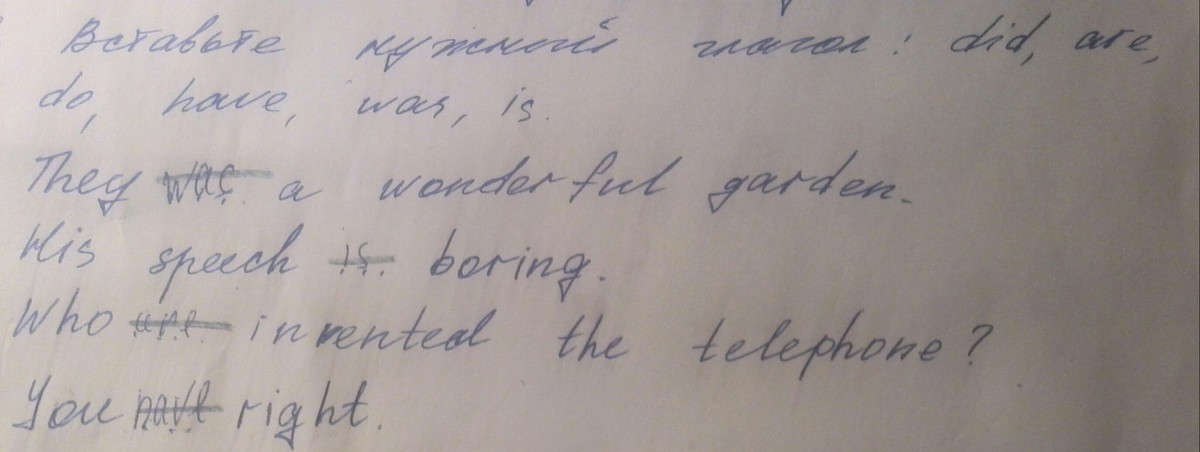 Вставьте нужный глагол: did, are,
do, have, was, is.
They was a wonderful garden.
His speech is boring.
Who are invented the telephone?
You have right.